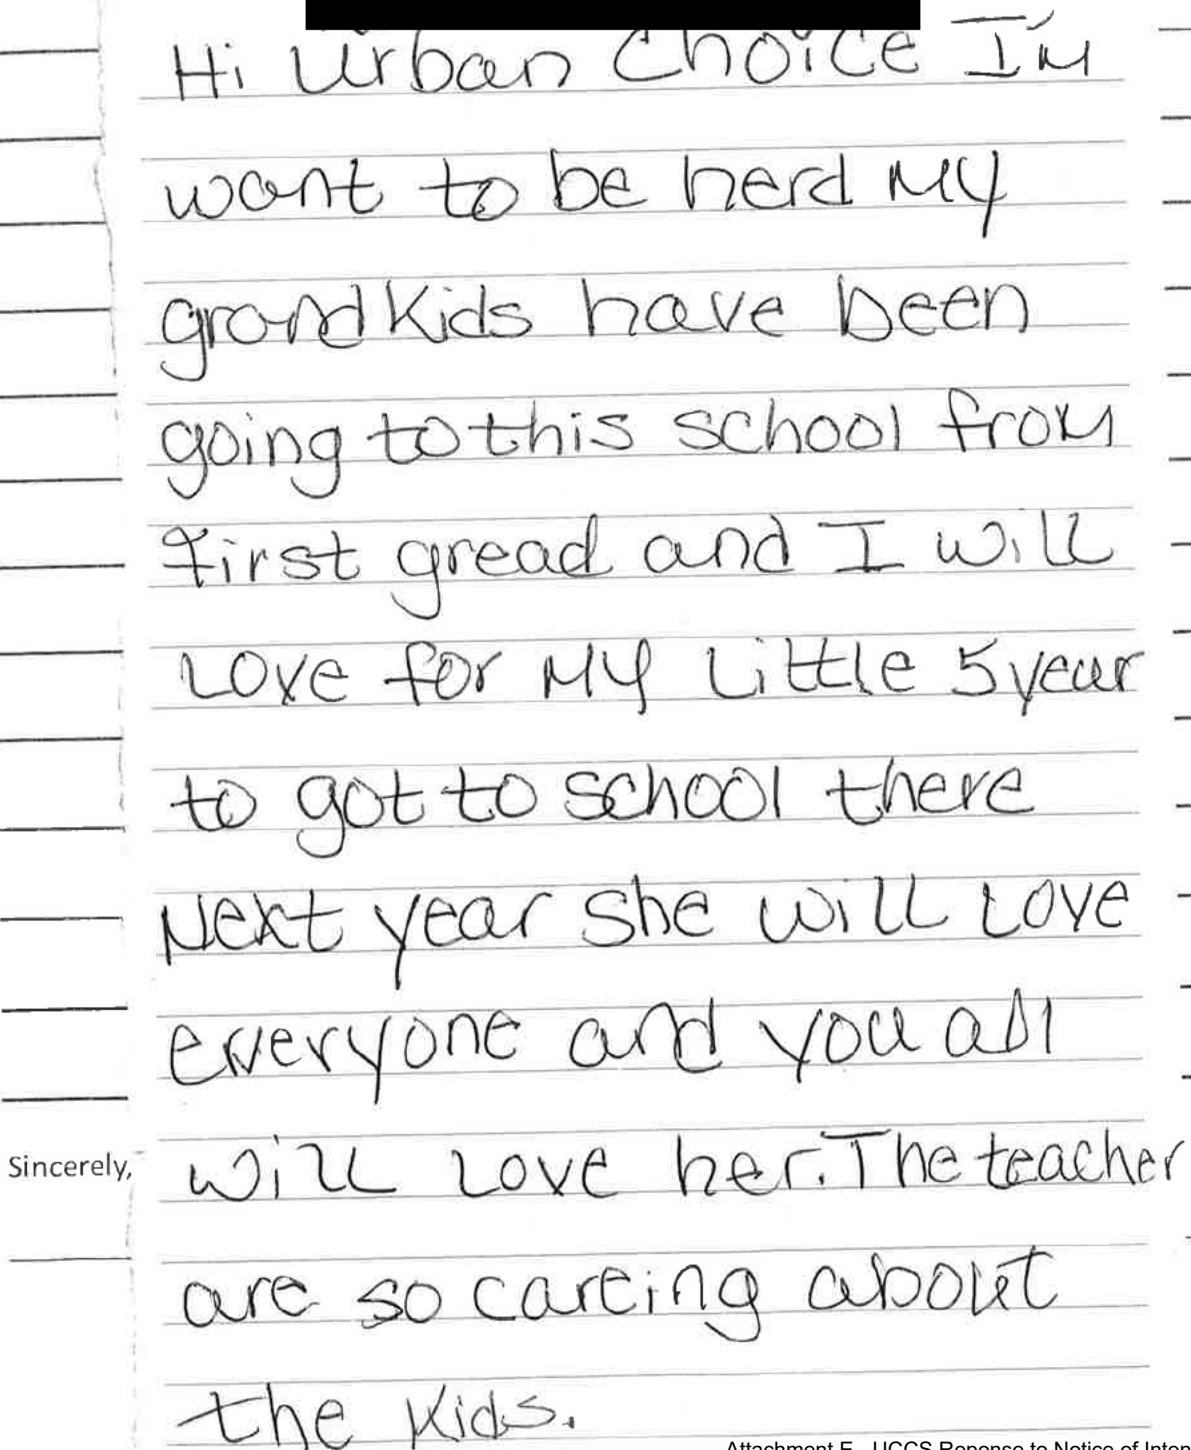 Hi Urban Choice I'm
want to be herd My
grandkids have been
going to this school from
first gread and I will
Love for My Little 5 year
to got to school there
Next year she will Love
everyone and you all
Sincerely,
will Love her. The teacher
are so careing about
the Kids.
Attachment E - UCCS Reponse to Notice of Inten